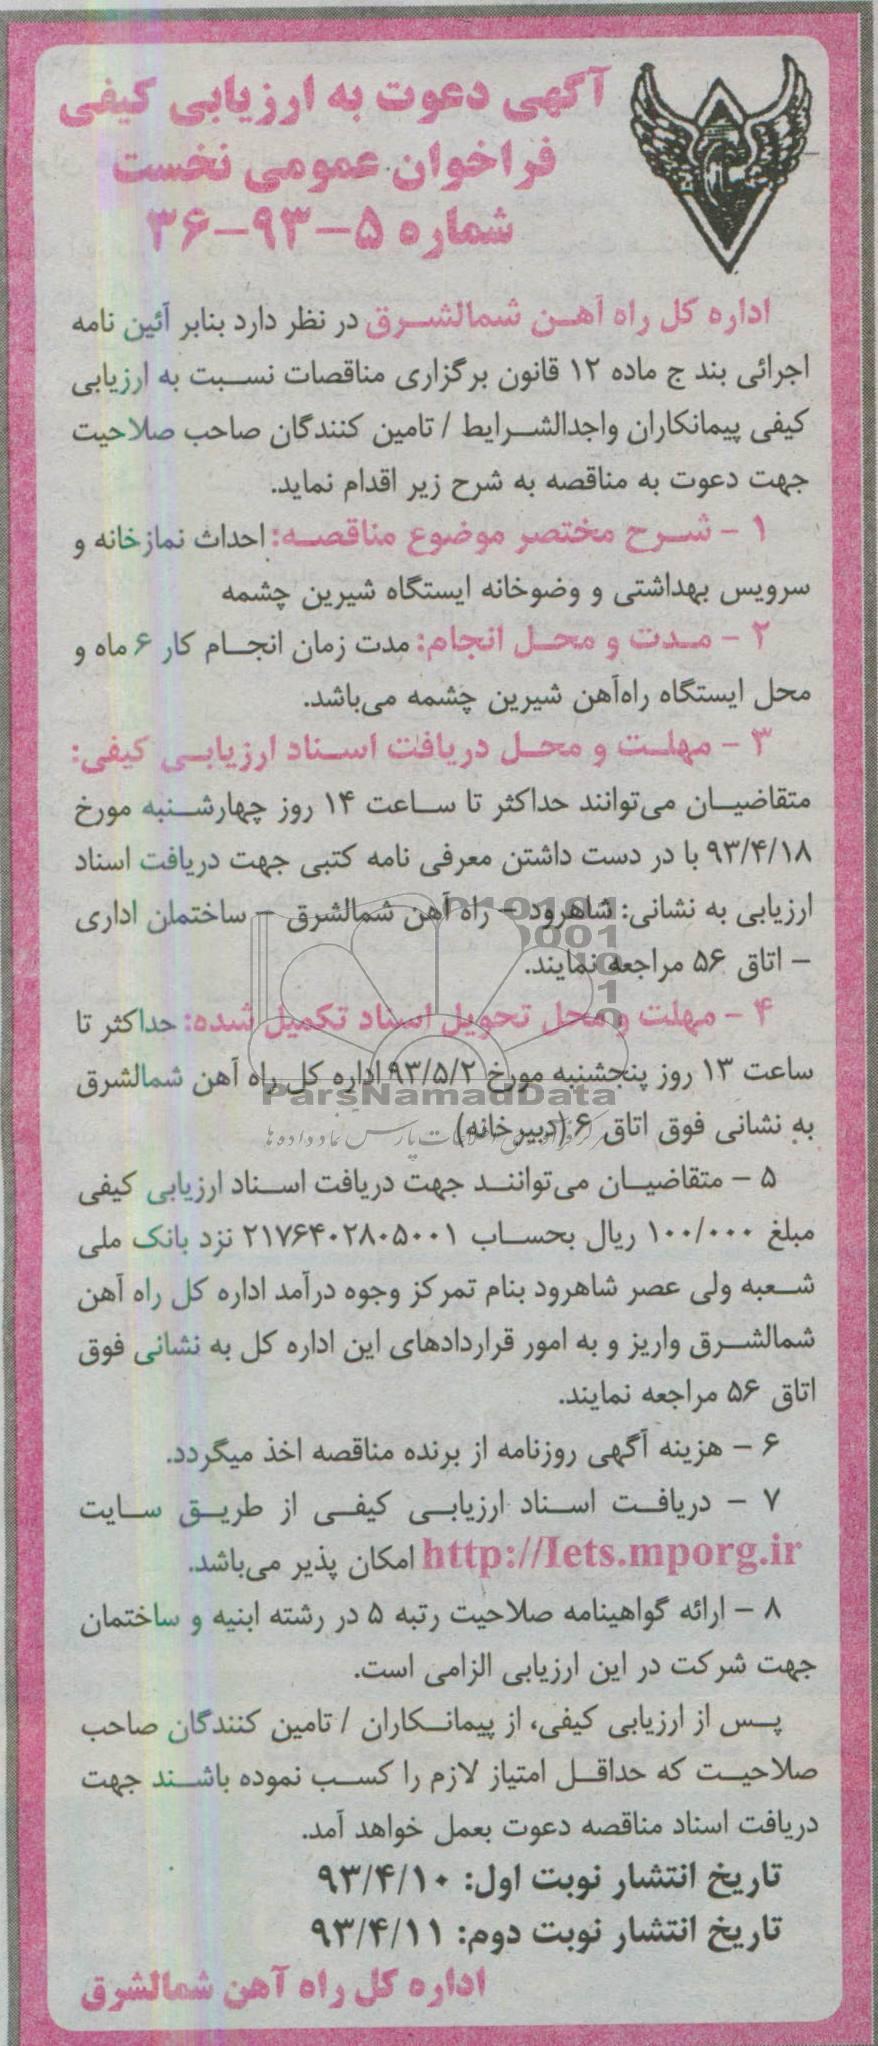 آگهی دعوت به ارزیابی کیفی
فراخوان عمومی نخست
شماره ۵-۹۳-۳۶
اداره کل راه آهن شمالشرق در نظر دارد بنابر آئین نامه
اجرائی بند ج ماده ۱۲ قانون برگزاری مناقصات نسبت به ارزیابی
کیفی پیمانکاران واجدالشرایط / تامین کنندگان صاحب صلاحیت
جهت دعوت به مناقصه به شرح زیر اقدام نماید.
۱ - شرح مختصر موضوع مناقصه: احداث نمازخانه و
سرویس بهداشتی و وضوخانه ایستگاه شیرین چشمه
۲ - مدت و محل انجام: مدت زمان انجام کار ۶ ماه و
محل ایستگاه راه‌آهن شیرین چشمه می‌باشد.
۳ - مهلت و محل دریافت اسناد ارزیابی کیفی:
متقاضیان می‌توانند حداکثر تا ساعت ۱۴ روز چهارشنبه مورخ
۹۳/۴/۱۸ با در دست داشتن معرفی نامه کتبی جهت دریافت اسناد
ارزیابی به نشانی: شاهرود - راه آهن شمالشرق - ساختملن اداری
- اتاق ۵۶ مراجعه نمایند.
۴ - مهلت و محل تحویل اسناد تکمیل شده: حداکثر تا
ساعت ۱۳ روز پنجشنبه مورخ ۹۳/۵/۲ اداره کل راه آهن شمالشرق
ParsNamadData
به نشانی فوق اتاق ۶ (دبیرخانه)
۵ - متقاضیان می‌توانند جهت دریافت اسناد ارزیابی کیفی
مبلغ ۱۰۰/۰۰۰ ریال بحساب ۲۱۷۶۴۰۲۸۰۵۰۰۱ نزد بانک ملی
شعبه ولی عصر شاهرود بنام تمرکز وجوه درآمد اداره کل راه آهن
شمالشرق واریز و به امور قراردادهای این اداره کل به نشانی فوق
اتاق ۵۶ مراجعه نمایند.
۶ - هزینه آگهی روزنامه از برنده مناقصه اخذ میگردد.
۷ - دریافت اسناد ارزیابی کیفی از طریق سایت
http://Iets.mporg.ir امکان پذیر می‌باشد.
۸ - ارائه گواهینامه صلاحیت رتبه ۵ در رشته ابنیه و ساختمان
جهت شرکت در این ارزیابی الزامی است.
پس از ارزیابی کیفی، از پیمانکاران / تامین کنندگان صاحب
صلاحیت که حداقل امتیاز لازم را کسب نموده باشند جهت
دریافت اسناد مناقصه دعوت بعمل خواهد آمد.
تاریخ انتشار نوبت اول: ۹۳/۴/۱۰
تاریخ انتشار نوبت دوم: ۹۳/۴/۱۱
اداره کل راه آهن شمالشرق